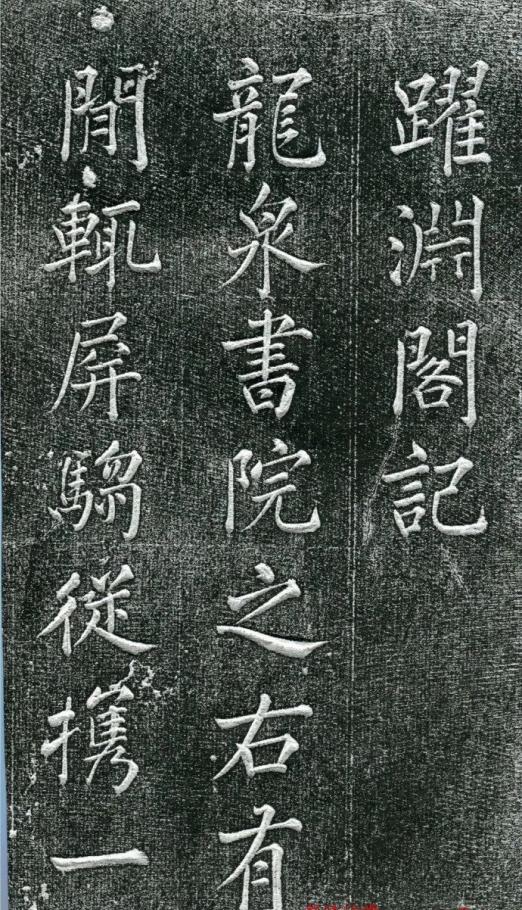 躍淵閣記
龍泉書院之右有
間輒屏騶從攜一